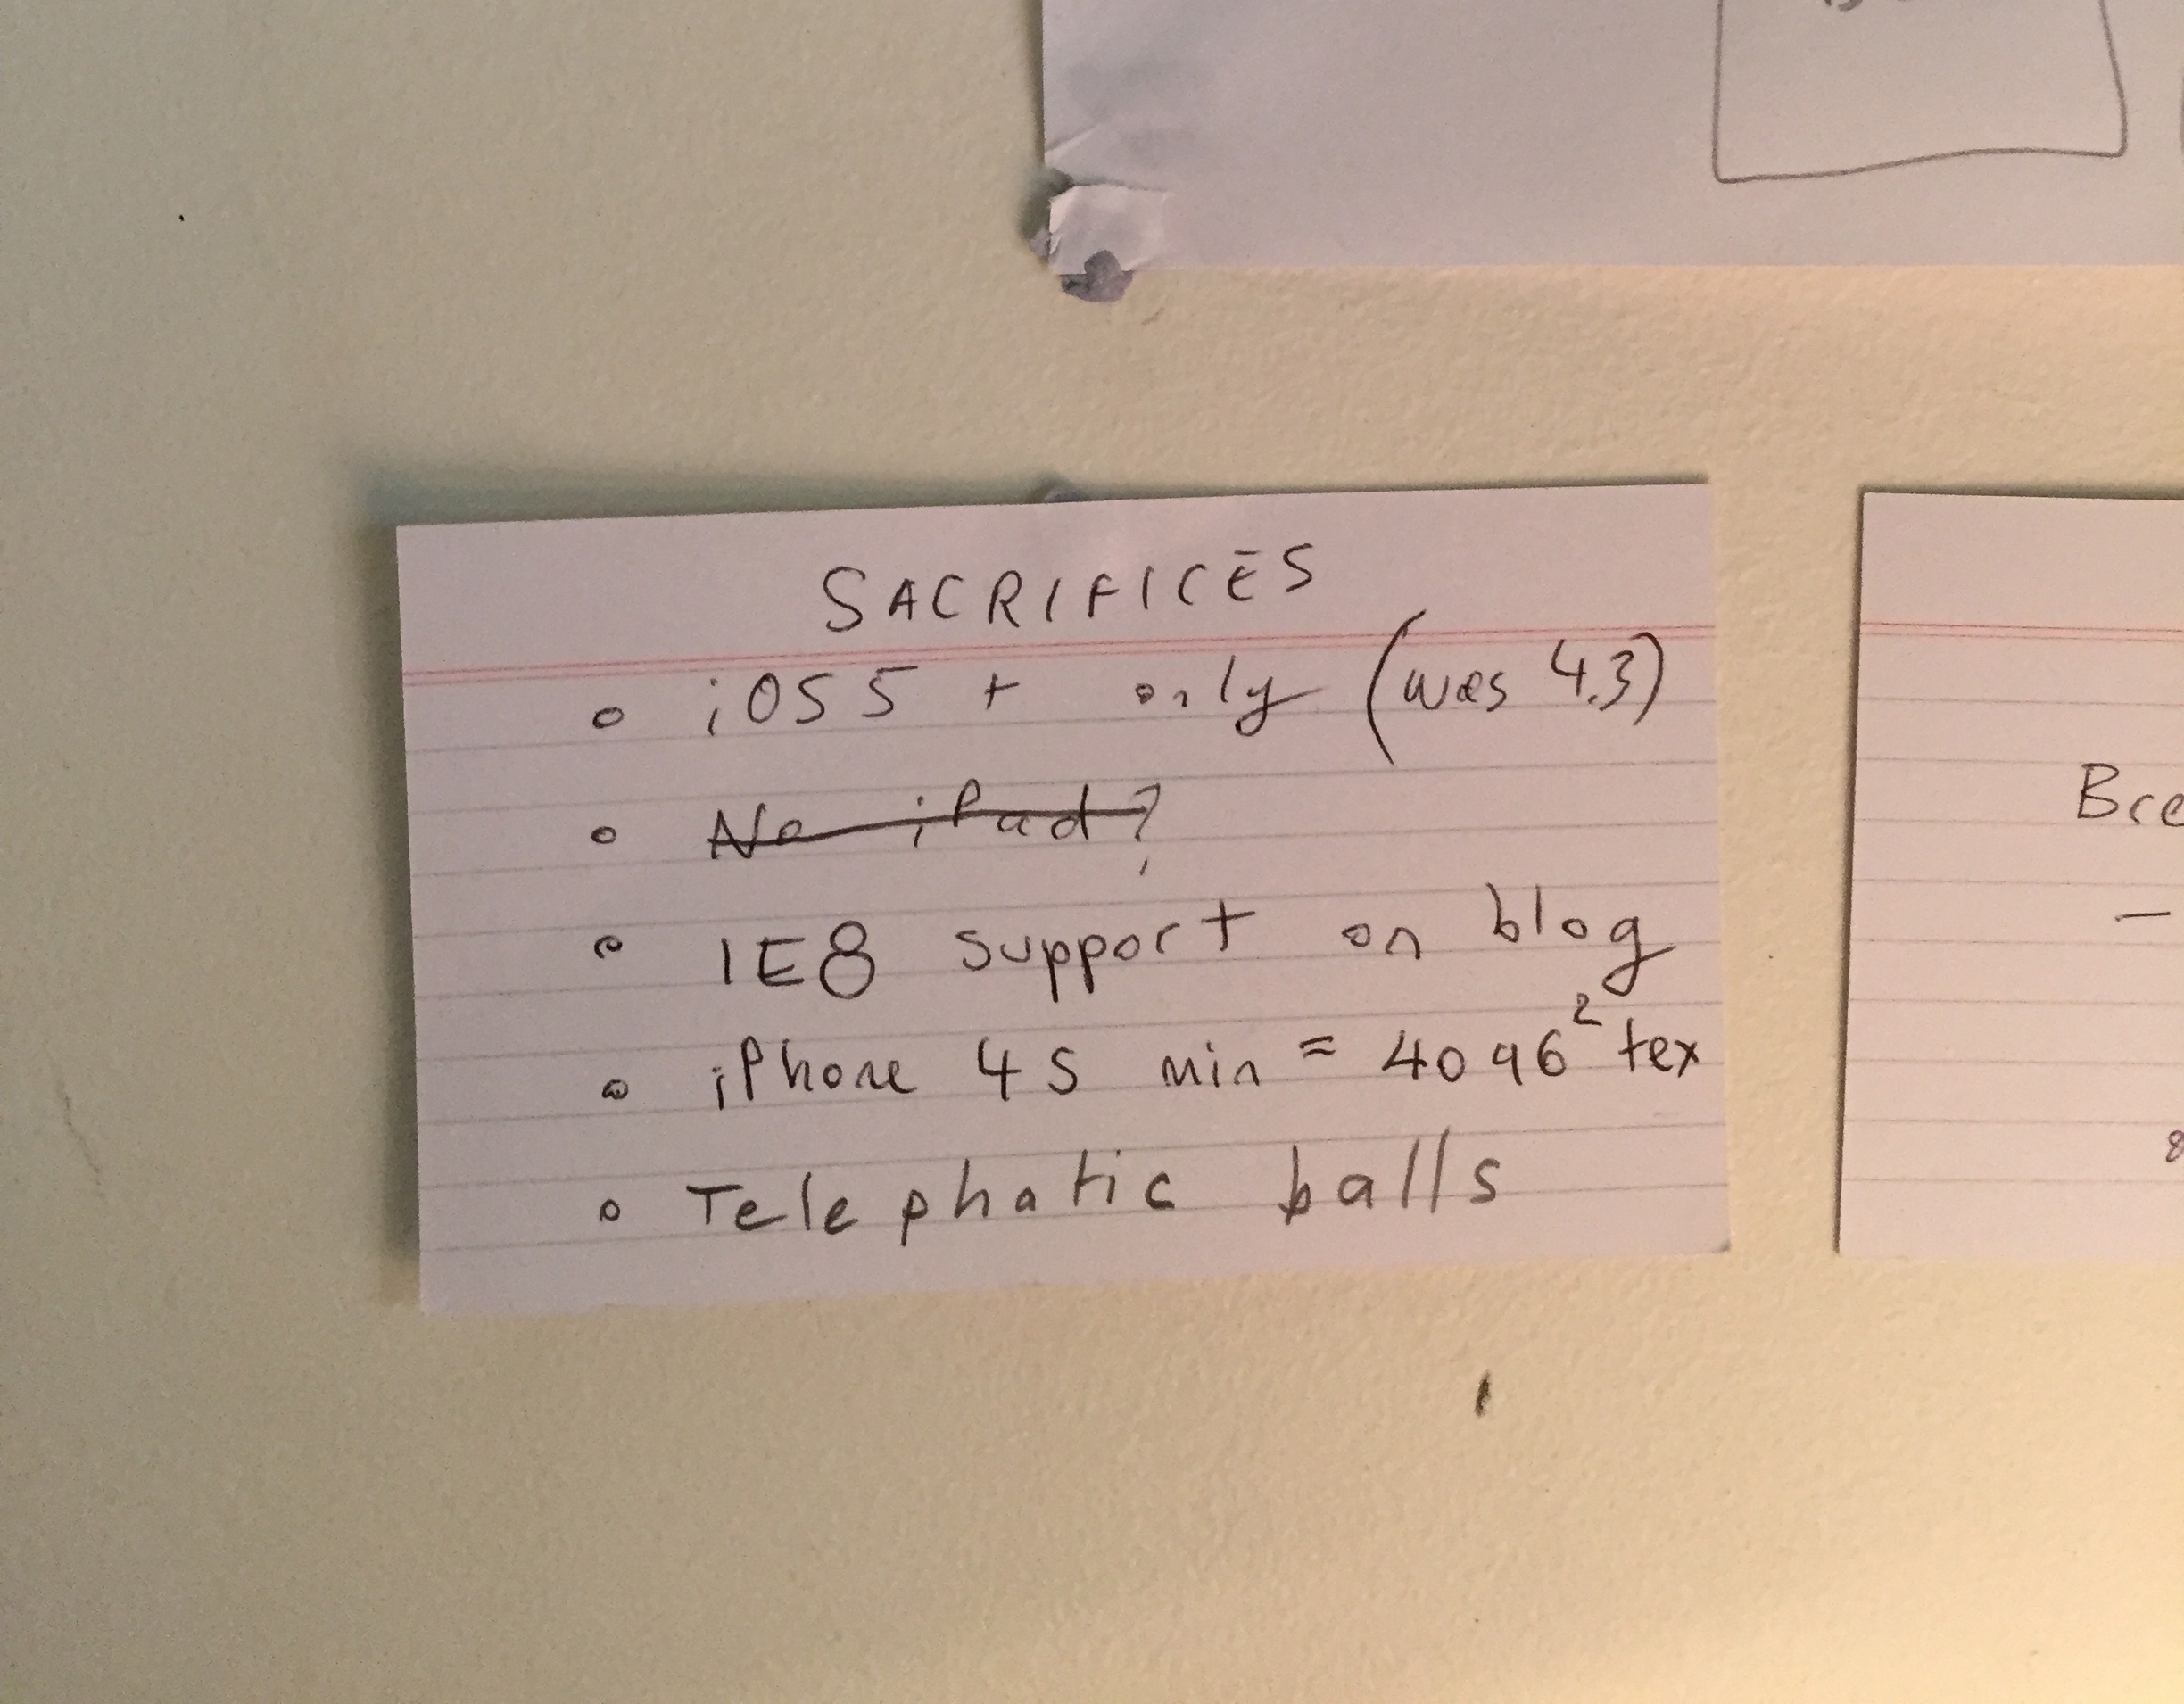 SACRIFICES
◦ iOS 5 + only (was 4.3)
◦ No iPad?
◦ IE8 support on blog
◦ iPhone 4S min = 4096² tex
◦ Telephatic balls
8